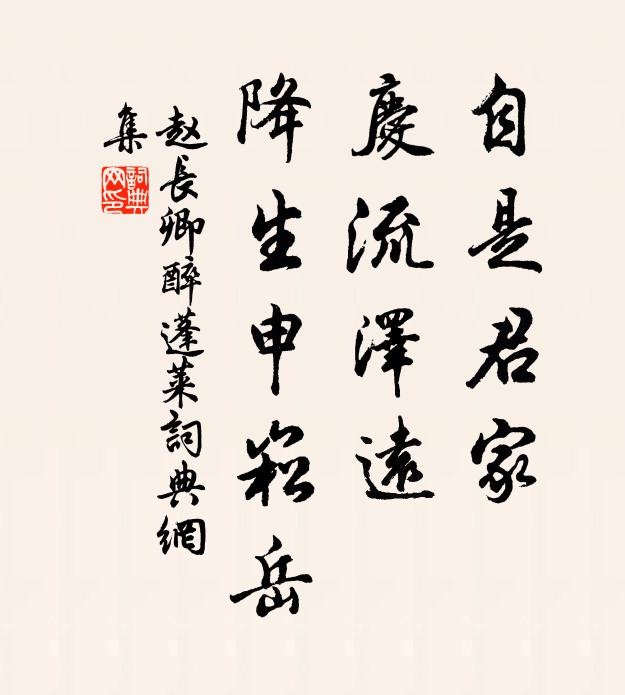 自是君家
慶流澤遠
降生申崧岳
赵長卿醉蓬莱詞典網
集
詞典
网印